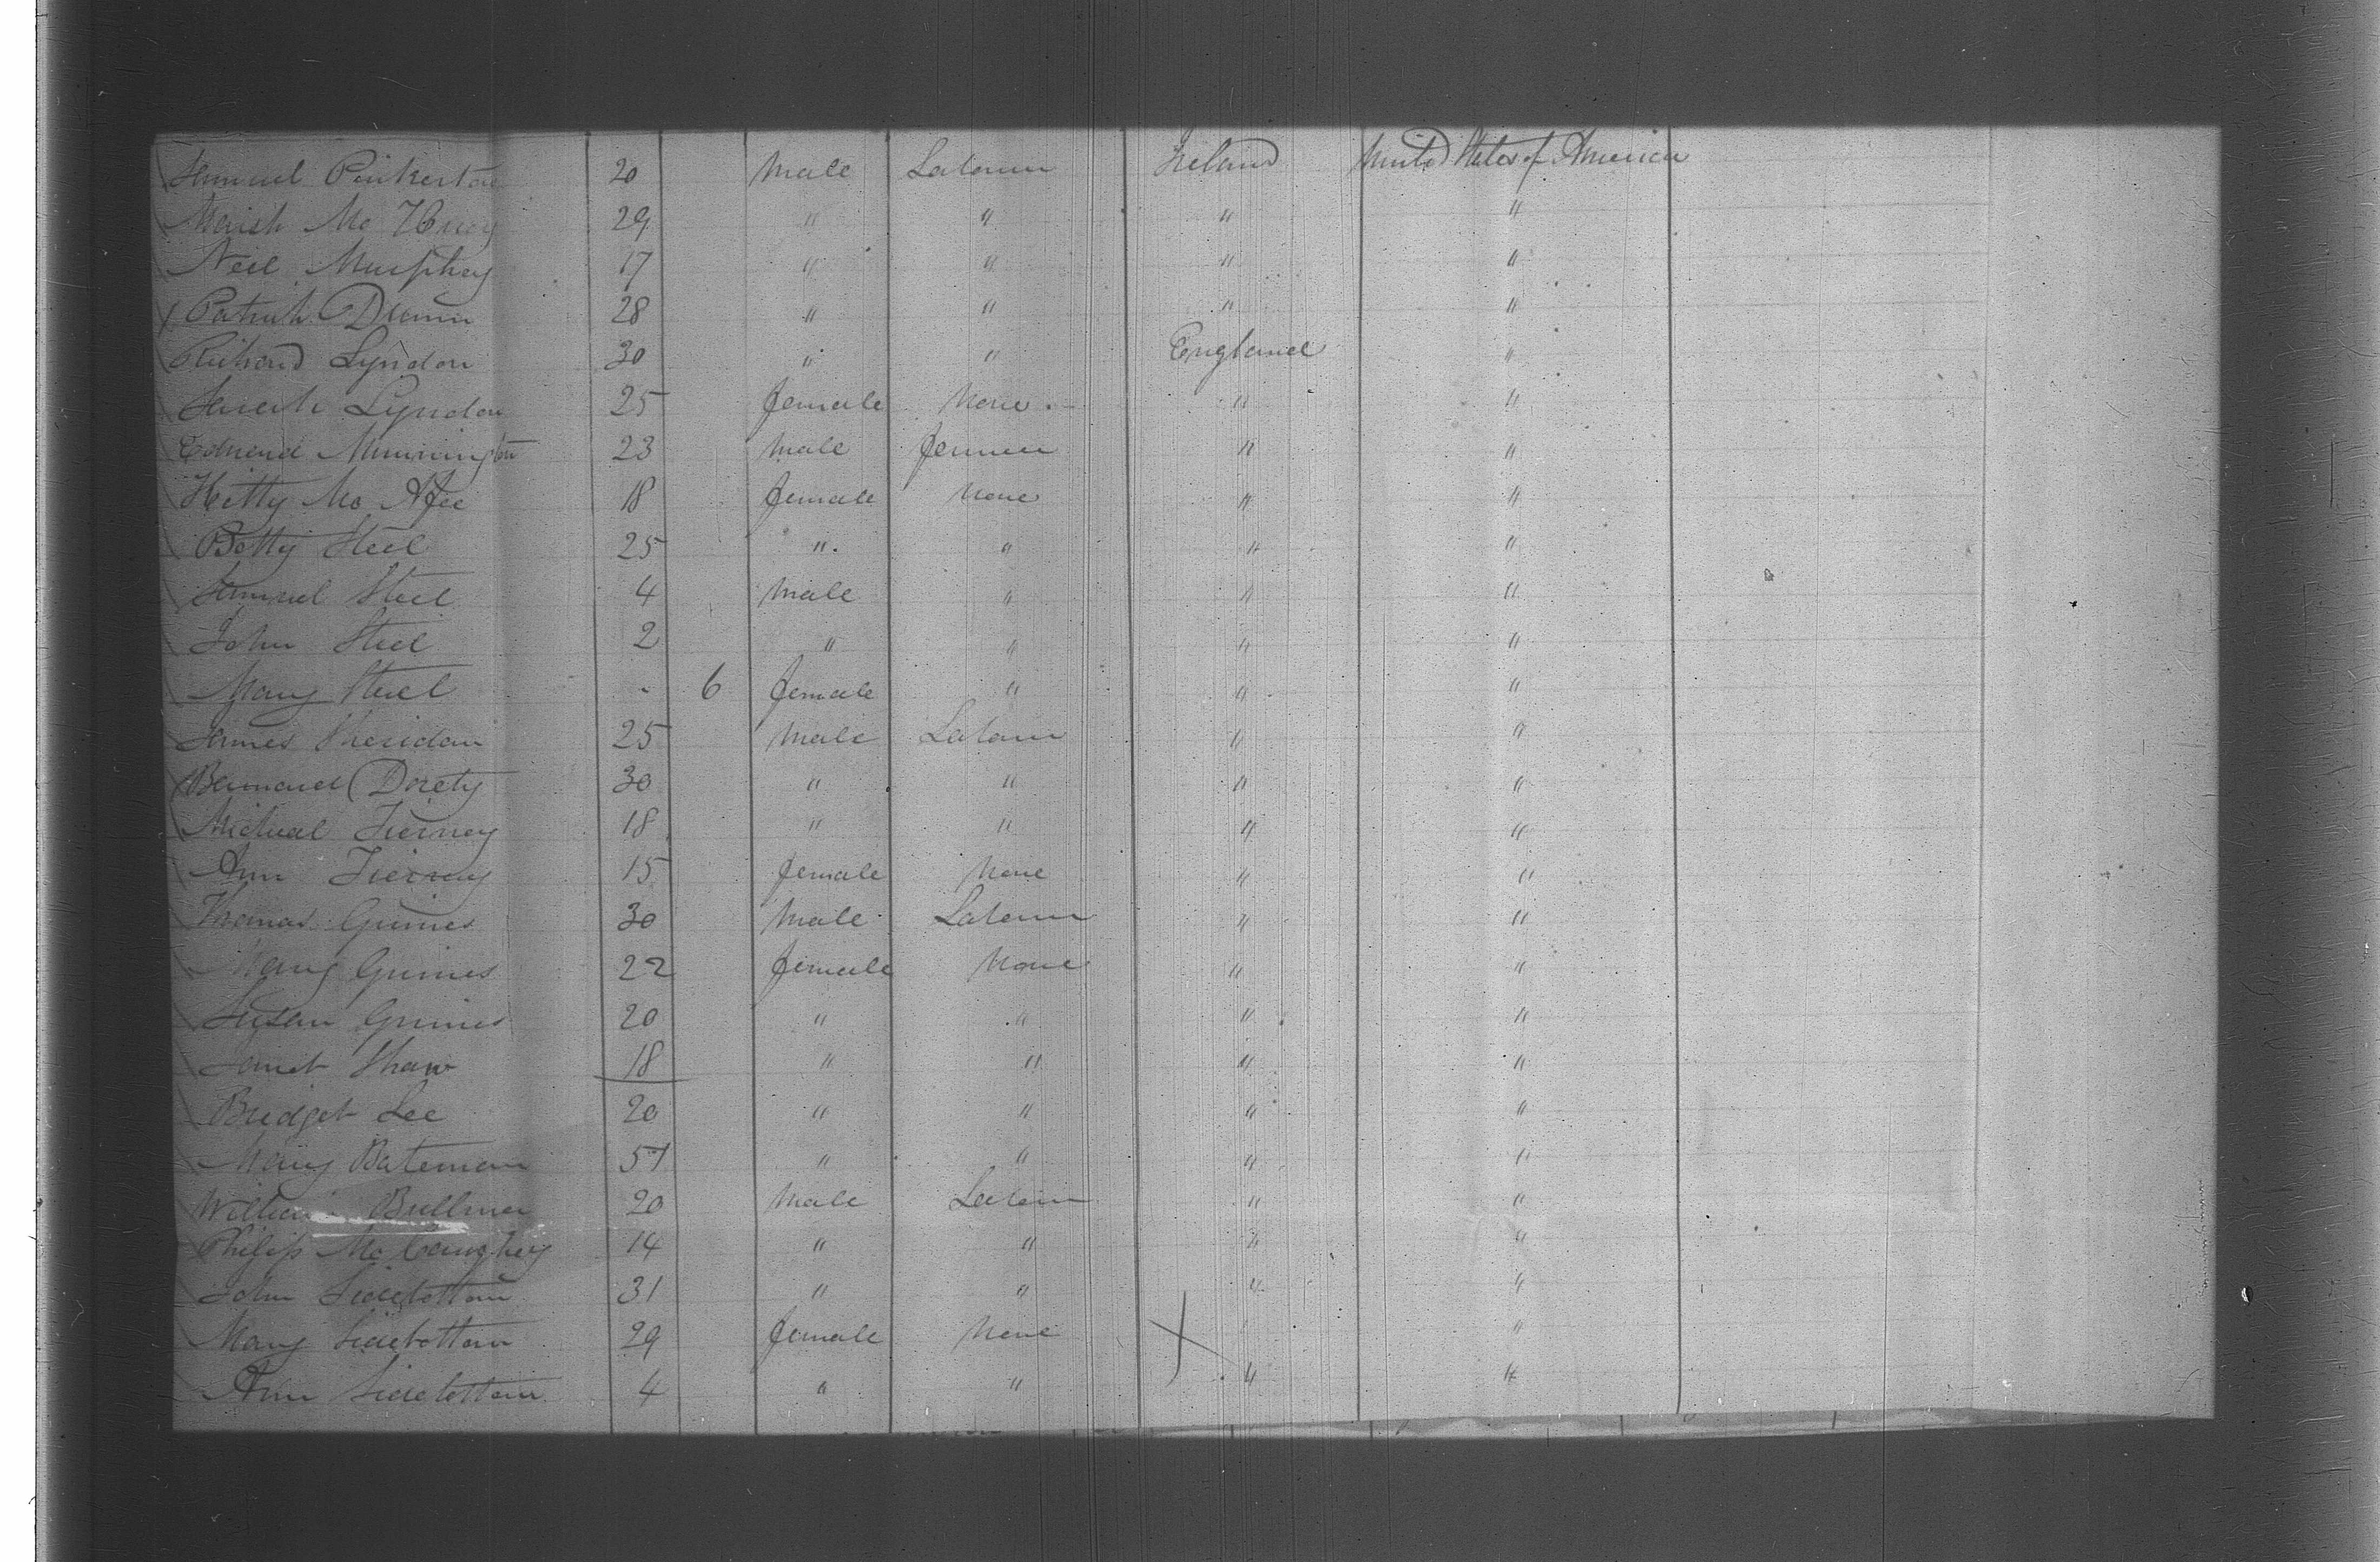 Samuel Pinkerton 20 Male Laborer Ireland United States of America
Mc Henry 29 " " " "
Neil Murphey 17 " " " "
Patrick Dunn 28 " " " "
Richard Lyndon 30 " " England "
Sarah Lyndon 25 female None " "
Edmend Munnington 23 Male " "
Hetty Mc Afee 18 female None " "
Betty Steel 25 " " " "
Samuel Steel 4 Male " " "
John Steel 2 " " " "
Mary Steel - 6 female " " "
James Sheridan 25 Male " "
Bernard Dorety 30 " " " "
Michael Tierney 18 " " " "
Ann Tierney 15 female None " "
Thomas Grimes 30 Male " "
Mary Grimes 22 female None " "
Susan Grimes 20 " " " "
Janet Shaw 18 " " " "
Bridget Lee 20 " " " "
Mary Bateman 51 " " " "
William Bullmer 20 Male " "
Philip Mc Caughey 14 " " " "
John Sidebottom 31 " " " "
Mary Sidebottom 29 female None "
Ann Sidebottom 4 " " " "